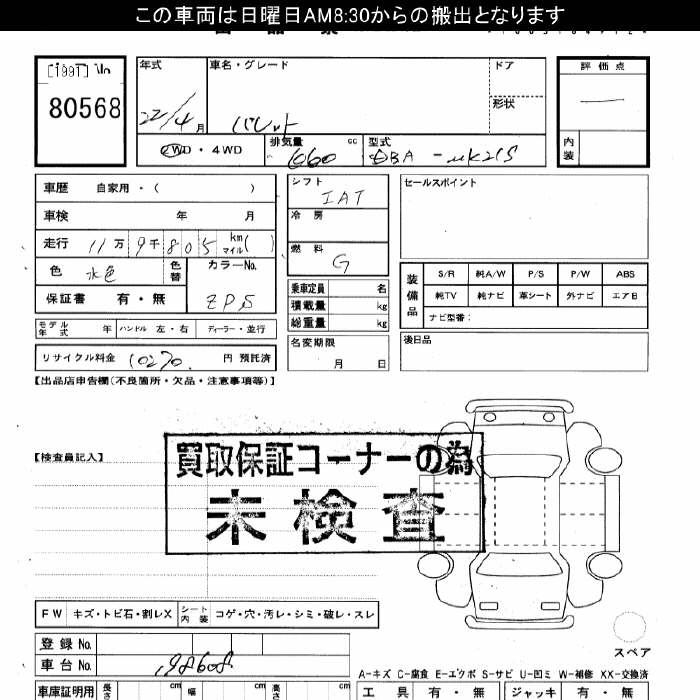 この車両は日曜日AM8:30からの搬出となります
[1991] No
80568
年式
22/4月
車名・グレード
パレット
ドア
形状
評価点
内装
2WD・4WD
排気量
660 cc
型式
DBA-MK21S
車歴 自家用・( )
車検 年 月
走行 11万9千805 km マイル( )
色 水色 色替
カラーNo.
ZPS
保証書 有・無
モデル年式 年 ハンドル 左・右 ディーラー・並行
リサイクル料金 10270 円 預託済
シフト
IAT
冷房
燃料
G
乗車定員 名
積載量 kg
総重量 kg
名変期限
月 日
セールスポイント
装備品
S/R 純A/W P/S P/W ABS
純TV 純ナビ 革シート 外ナビ エアB
ナビ型番:
後日品
【出品店申告欄(不良箇所・欠品・注意事項等)】
【検査員記入】
買取保証コーナーの為
未検査
FW キズ・トビ石・割レX シート内装 コゲ・穴・汚レ・シミ・破レ・スレ
スペア
登録No.
車台No. 198608
A-キズ C-腐食 E-エクボ S-サビ U-凹ミ W-補修 XX-交換済
車庫証明用 長さ cm 幅 cm 高さ cm
工具 有・無 ジャッキ 有・無